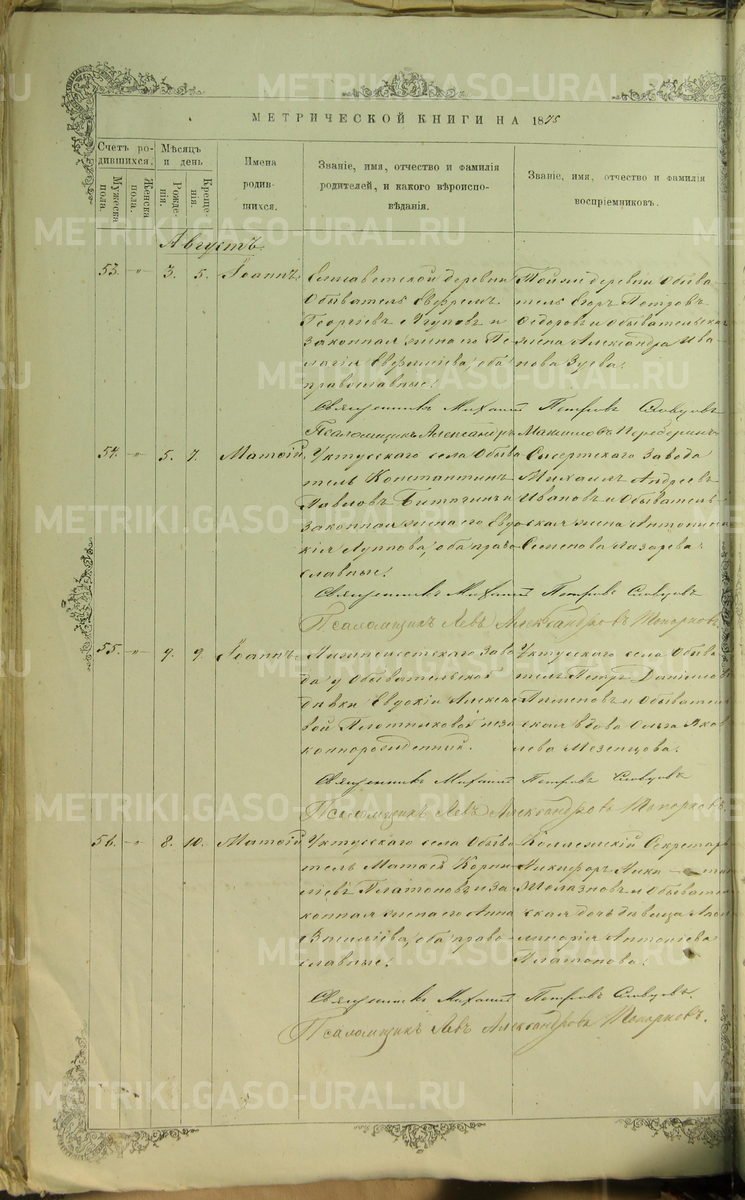 МЕТРИЧЕСКОЙ КНИГИ НА 1875
Счетъ родившихся.
Мужеска пола.
Женска пола.
Мѣсяцъ и день
Рожденія.
Крещенія.
Имена родившихся.
Званіе, имя, отчество и фамилія родителей, и какого вѣроисповѣданія.
Званіе, имя, отчество и фамилія воспріемниковъ.
Августъ.
53. -"- 3. 5. Іоаннъ.
Елисаветской деревни
Обыватель Ефремъ
Георгіевъ и
законная жена его Пе-
лагія оба
православные.
Тойже деревни Обыва-
тель Егоръ Петровъ
Ѳедоровъ и Обывательская
Александра Ива-
нова Зуева.
Священникъ Михаилъ Петровъ Словцовъ
Псаломщикъ Александръ Максимовъ
54. -"- 5. 7. Матѳій.
Уктусскаго села Обыва
тель Константинъ
Павловъ и
законная жена его Евдо
кія Луппова, оба право
славные.
Сысертскаго Завода
Михаилъ Андреевъ
Ивановъ и Обыватель-
ская жена
Семенова Лазарева.
Священникъ Михаилъ Петровъ Словцовъ
Псаломщикъ Левъ Александровъ Топорковъ.
55. -"- 7. 9. Іоаннъ.
Нижнеисетскаго Заво
да у Обывательской
дѣвки Евдокіи Алексѣе
вой Плотниковой неза
коннорожденный.
Уктусскаго села Обыва
тель Петръ Даніиловъ
Пименовъ и Обыватель
ская вдова Ольга Яков
лева Мезенцова.
Священникъ Михаилъ Петровъ Словцовъ
Псаломщикъ Левъ Александровъ Топорковъ.
56. -"- 8. 10. Матѳій
Уктусскаго села Обыва
тель Матвей Корни
ліевъ Платоновъ и за
конная жена его Анна
Василіева, оба право-
славные.
Коллежскій Секретарь
Никифоръ
и Обыватель
ская дочь дѣвица
Антоніева
Платонова.
Священникъ Михаилъ Петровъ Словцовъ.
Псаломщикъ Левъ Александровъ Топорковъ.
METRIKI.GASO-URAL.RU